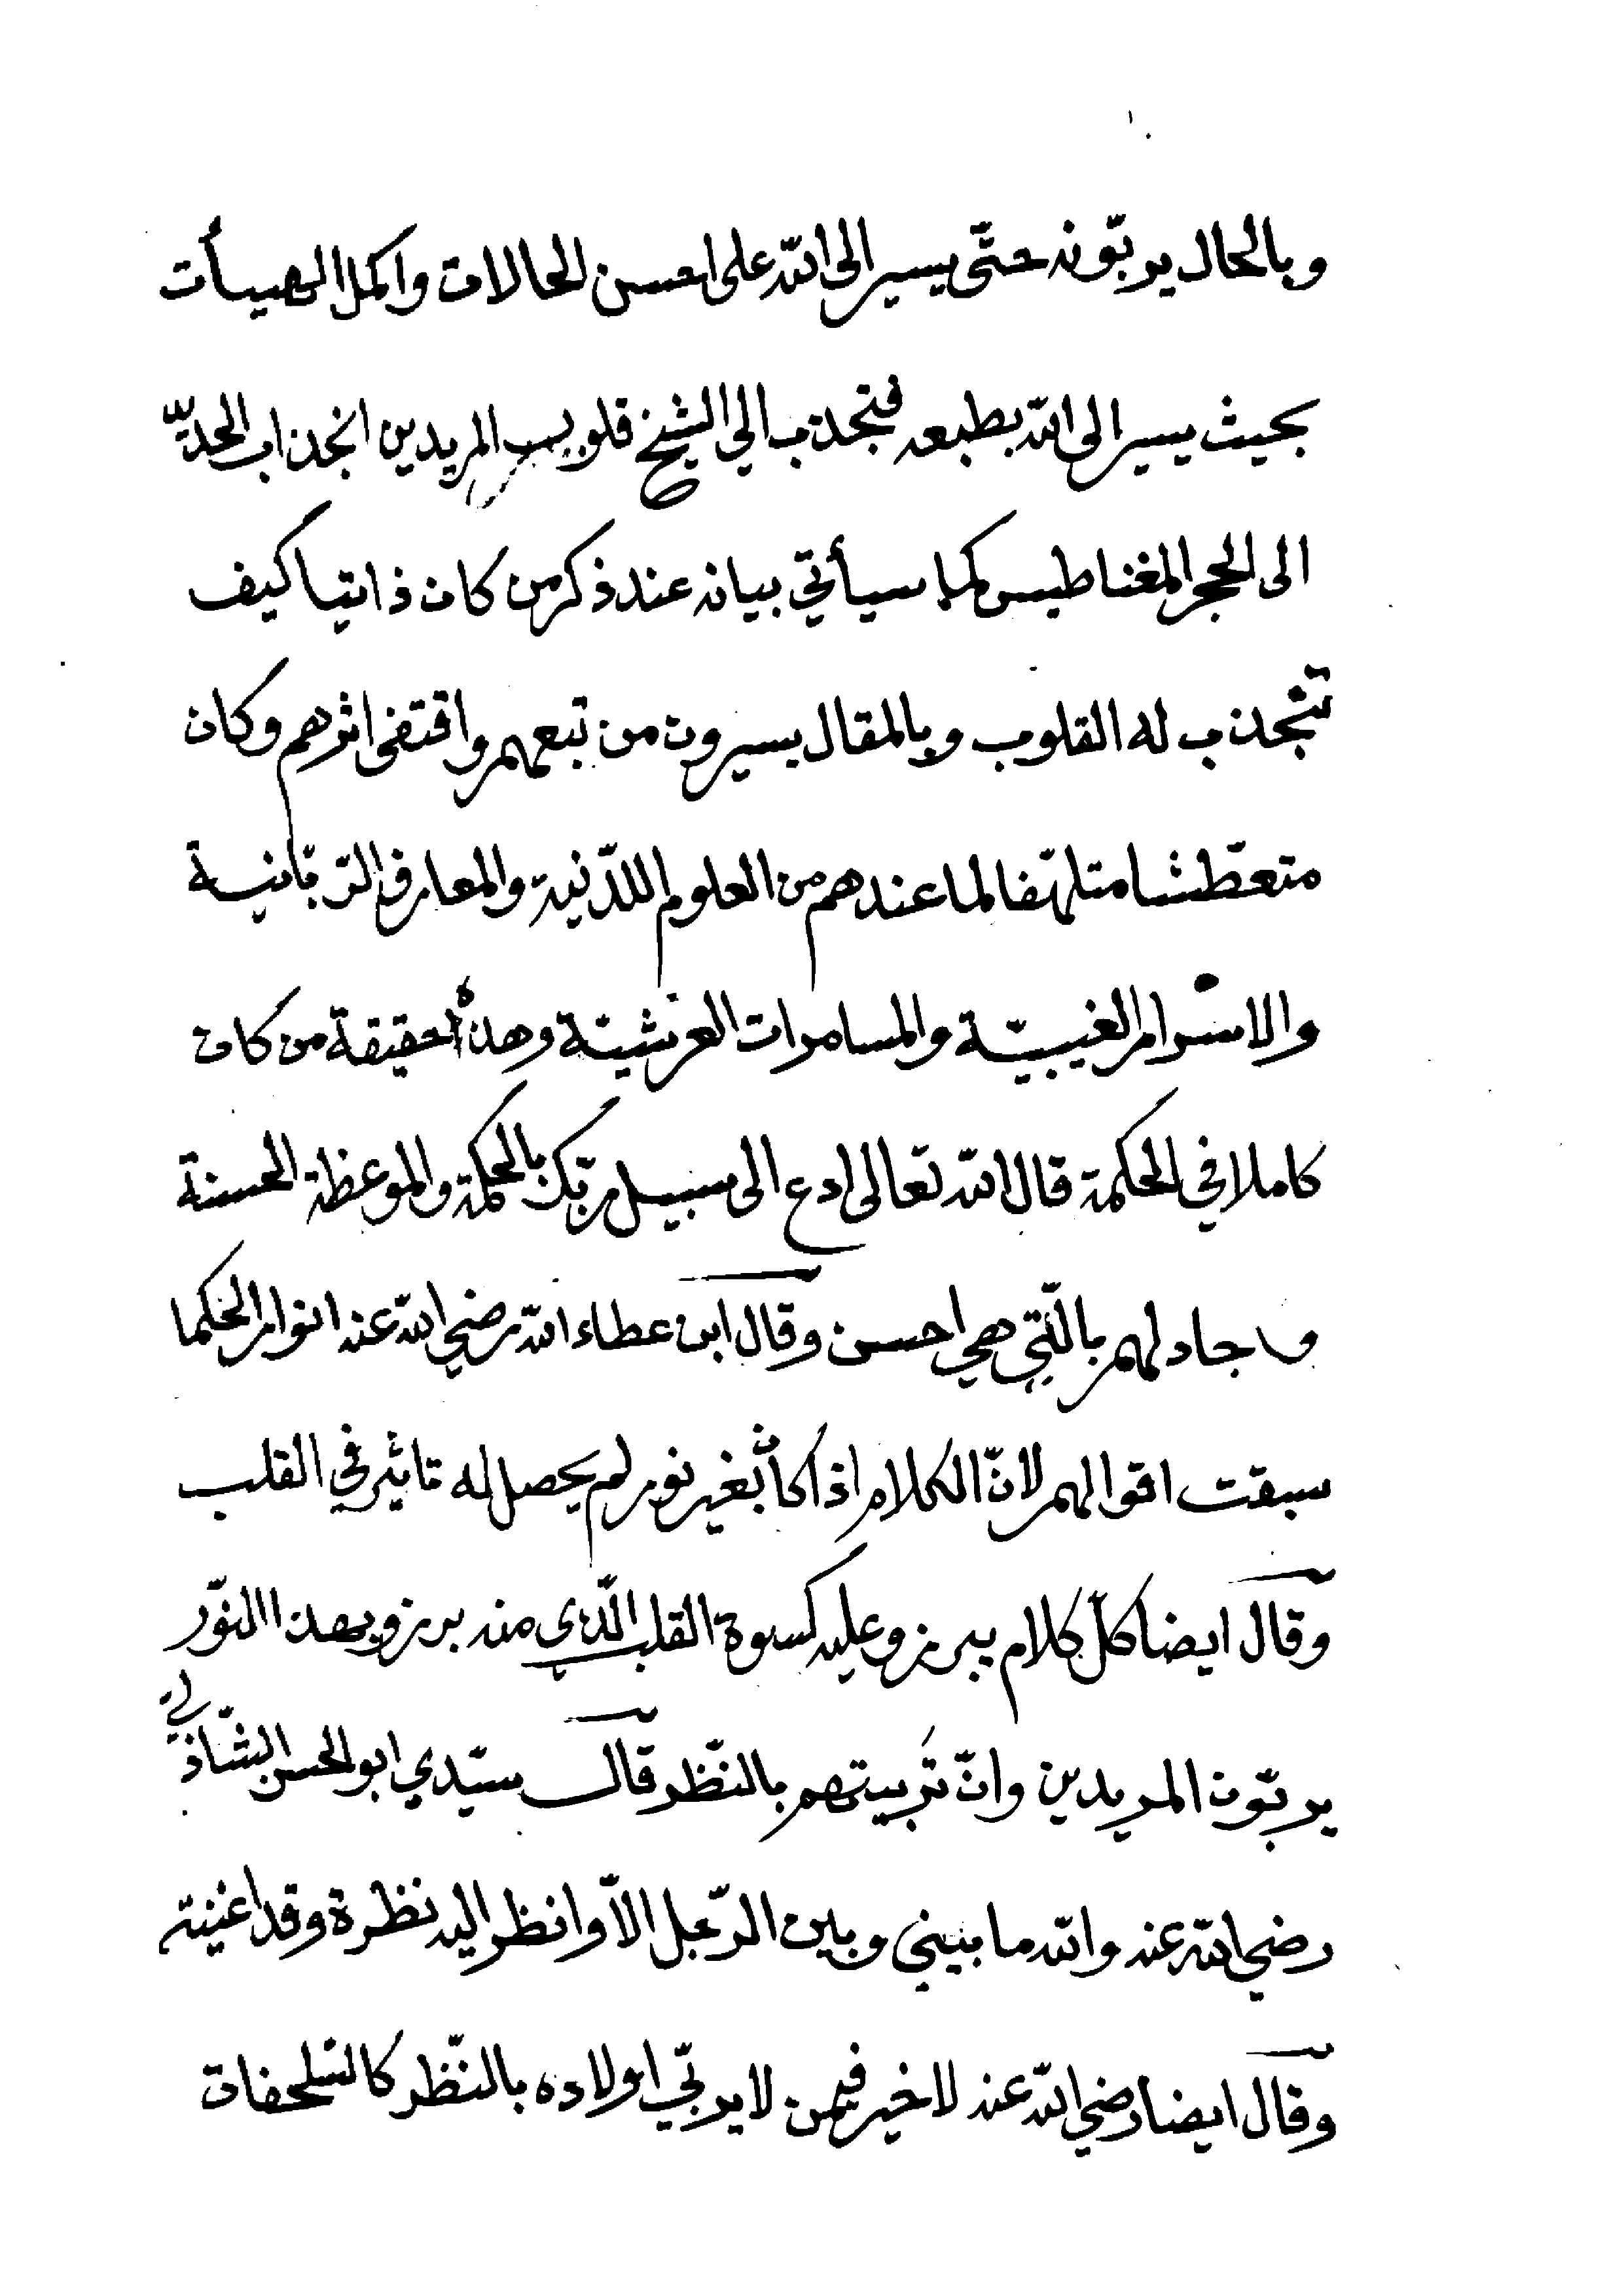 وبالحال يربّونه حتّى يسير الى الله على احسن الحالات واكمل الهيأت
بحيث يسير الى الله بطبعه فتجذب الي الشيخ قلوب المريدين انجذاب الحديد
الى الحجر المغناطيس كما سيأتي بيانه عند ذكر من كان ذاتيا كيف
تنجذب له القلوب وبالمقال يسيرون من تبعهم واقتفى اثرهم وكان
متعطّشا متلهّفا لما عندهم من العلوم اللدّنية والمعارف الربّانية
والاسرار الغيبيّة والمسامرات العرشيّة وهذه حقيقة من كان
كاملا في الحكمة قال الله تعالى ادع الى سبيل ربّك بالحكمة والموعظة الحسنة
وجادلهم بالّتي هي احسن وقال ابن عطاء الله رضي الله عنه انوار الحكما
سبقت اقوالهم لانّ الكلام اذا كان بغير نور لم يحصل له تاثير في القلب
وقال ايضا كلّ كلام يبرز وعليه كسوة القلب الّذي منه برز وبهذا النّور
يربّون المريدين وانّ تربيتهم بالنّظر قال سيّدي ابو الحسن الشّاذلي
رضي الله عنه والله ما بيني وبين الرّجل الاّ وانظر اليه نظرة وقد اغنيته
وقال ايضا رضي الله عنه لا خير فيمن لا يربّي اولاده بالنّظر كالسّلحفات